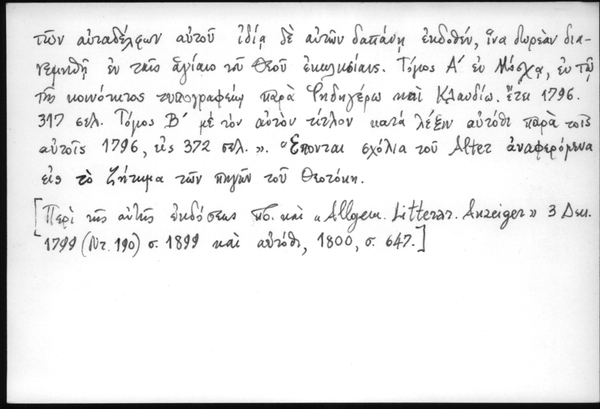 τῶν αὐταδέλφων αὐτοῦ ἰδίᾳ δὲ αὐτῶν δαπάνῃ ἐκδοθέν, ἵνα δωρεὰν δια-
νεμηθῇ ἐν ταῖς ἁγίαις τοῦ Θεοῦ ἐκκλησίαις. Τόμος Α´ ἐν Μόσχᾳ, ἐν τῷ
τῆς κοινότητος τυπογραφείῳ παρὰ Ῥηδηγέρῳ καὶ Κλαυδίῳ. ἔτει 1796.
317 σελ. Τόμος Β´ μὲ τὸν αὐτὸν τίτλον κατὰ λέξιν αὐτόθι παρὰ τοῖς
αὐτοῖς 1796, εἰς 372 σελ.». Ἕπονται σχόλια τοῦ Alter ἀναφερόμενα
εἰς τὸ ζήτημα τῶν πηγῶν τοῦ Θεοτόκη.
[Περὶ τῆς αὐτῆς ἐκδόσεως πβ. καὶ «Allgem. Litterar. Anzeiger» 3 Δεκ.
1799 (Nr. 190) σ. 1899 καὶ αὐτόθι, 1800, σ. 647.]